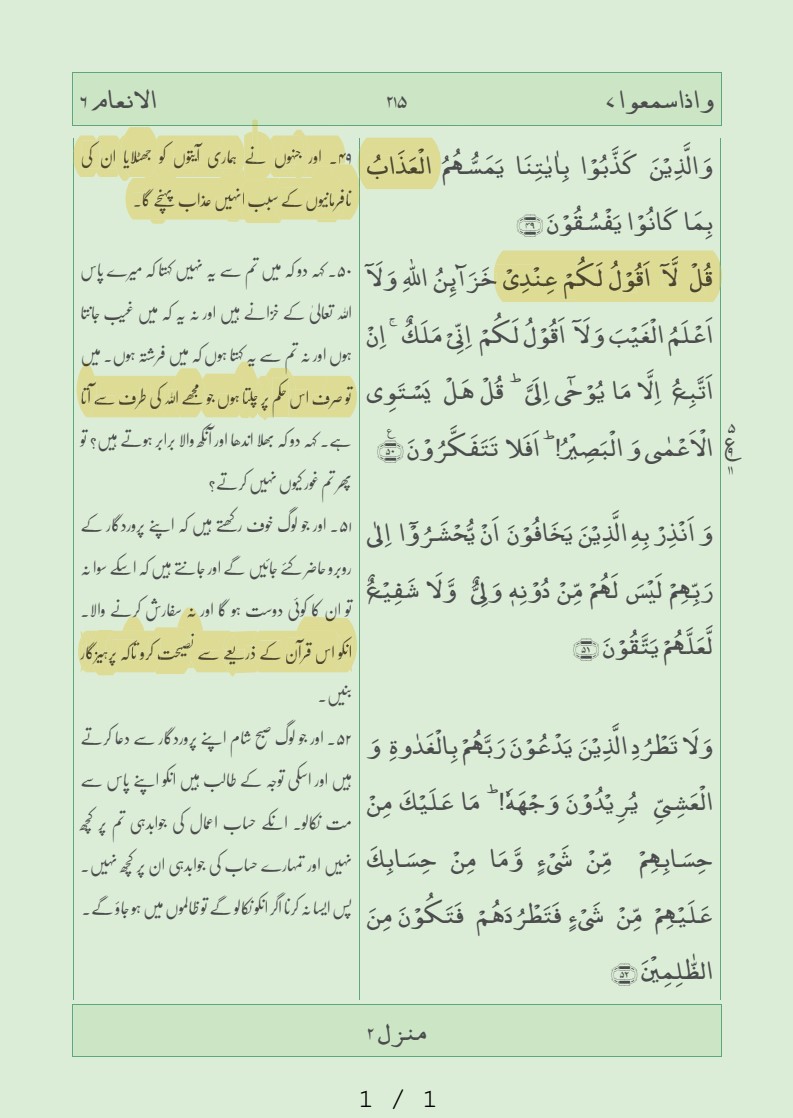 واذاسمعوا ٧
٢١٥
الانعام ٦
وَالَّذِيْنَ كَذَّبُوْا بِاٰيٰتِنَا يَمَسُّهُمُ الْعَذَابُ
بِمَا كَانُوْا يَفْسُقُوْنَ ﴿۴۹﴾
قُلْ لَّآ اَقُوْلُ لَكُمْ عِنْدِىْ خَزَآئِنُ اللّٰهِ وَلَآ
اَعْلَمُ الْغَيْبَ وَلَآ اَقُوْلُ لَكُمْ اِنِّىْ مَلَكٌ ۚ اِنْ
اَتَّبِعُ اِلَّا مَا يُوْحٰٓى اِلَىَّ ؕ قُلْ هَلْ يَسْتَوِى
الْاَعْمٰى وَ الْبَصِيْرُ‌ؕ اَفَلَا تَتَفَكَّرُوْنَ ﴿۵۰﴾
وَ اَنْذِرْ بِهِ الَّذِيْنَ يَخَافُوْنَ اَنْ يُّحْشَرُوْٓا اِلٰى
رَبِّهِمْ لَيْسَ لَهُمْ مِّنْ دُوْنِهٖ وَلِىٌّ وَّلَا شَفِيْعٌ
لَّعَلَّهُمْ يَتَّقُوْنَ ﴿۵۱﴾
وَلَا تَطْرُدِ الَّذِيْنَ يَدْعُوْنَ رَبَّهُمْ بِالْغَدٰوةِ وَ
الْعَشِىِّ يُرِيْدُوْنَ وَجْهَهٗ‌ؕ مَا عَلَيْكَ مِنْ
حِسَابِهِمْ مِّنْ شَىْءٍ وَّمَا مِنْ حِسَابِكَ
عَلَيْهِمْ مِّنْ شَىْءٍ فَتَطْرُدَهُمْ فَتَكُوْنَ مِنَ
الظّٰلِمِيْنَ ﴿۵۲﴾
۴۹۔ اور جنہوں نے ہماری آیتوں کو جھٹلایا ان کی
نافرمانیوں کے سبب انہیں عذاب پہنچے گا۔
۵۰۔ کہہ دو کہ میں تم سے یہ نہیں کہتا کہ میرے پاس
اللہ تعالیٰ کے خزانے ہیں اور نہ یہ کہ میں غیب جانتا
ہوں اور نہ تم سے یہ کہتا ہوں کہ میں فرشتہ ہوں۔ میں
تو صرف اس حکم پر چلتا ہوں جو مجھے اللہ کی طرف سے آتا
ہے۔ کہہ دو کہ بھلا اندھا اور آنکھ والا برابر ہوتے ہیں؟ تو
پھر تم غور کیوں نہیں کرتے؟
۵۱۔ اور جو لوگ خوف رکھتے ہیں کہ اپنے پروردگار کے
روبرو حاضر کئے جائیں گے اور جانتے ہیں کہ اسکے سوا نہ
تو ان کا کوئی دوست ہو گا اور نہ سفارش کرنے والا۔
انکو اس قرآن کے ذریعے سے نصیحت کرو تاکہ پرہیزگار
بنیں۔
۵۲۔ اور جو لوگ صبح شام اپنے پروردگار سے دعا کرتے
ہیں اور اسکی توجہ کے طالب ہیں انکو اپنے پاس سے
مت نکالو۔ انکے حساب اعمال کی جوابدہی تم پر کچھ
نہیں اور تمہارے حساب کی جوابدہی ان پر کچھ نہیں۔
پس ایسا نہ کرنا اگر انکو نکالو گے تو ظالموں میں ہو جاؤ گے۔
منزل ٢
1 / 1